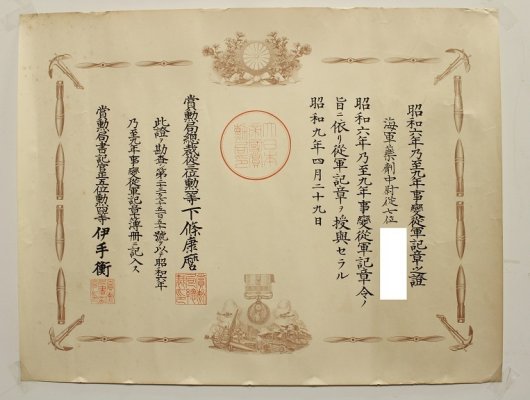 昭和六年乃至九年事變從軍記章之證
海軍藥劑中尉從七位
昭和六年乃至九年事變從軍記章令ノ
旨ニ依リ從軍記章ヲ授與セラル
昭和九年四月二十九日
大日本帝國賞勳局
賞勳局總裁從三位勳一等下條康麿
此證ヲ勘査シ第
號ヲ以テ昭和六年
乃至九年事變從軍記章簿册ニ記入ス
賞勳局書記官正五位勳四等伊手衡